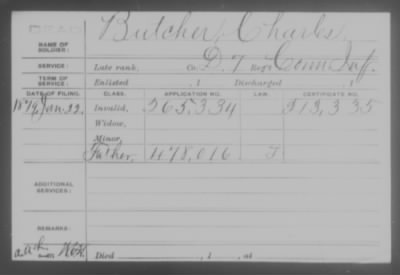 DEAD
Butcher, Charles,
NAME OF SOLDIER:
SERVICE: Late rank, Co. D. 7 Reg't Conn Inf.
TERM OF SERVICE: Enlisted , 1 Discharged , 1
DATE OF FILING. CLASS. APPLICATION NO. LAW. CERTIFICATE NO.
1879, Jan. 22. Invalid, 265,334 213,335
Widow,
Minor,
Father, 478,016 J
ADDITIONAL SERVICES:
REMARKS:
Died , 1 , at